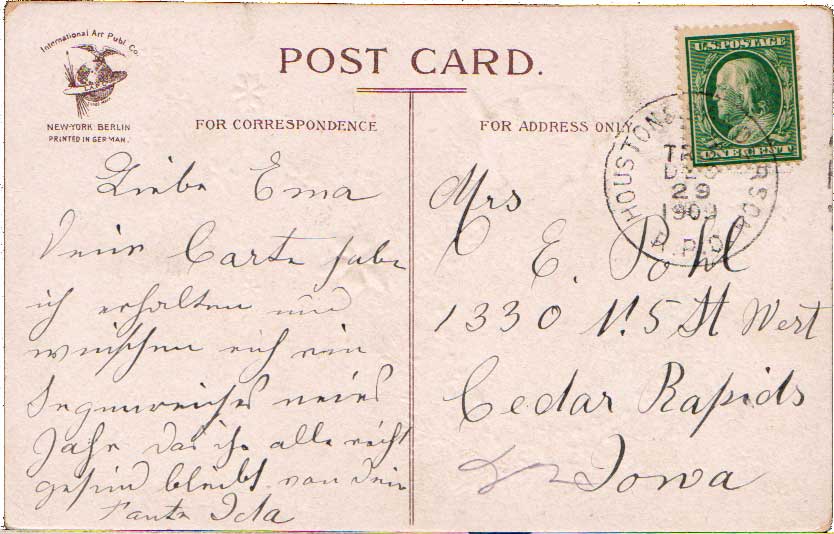 International Art Publ. Co.
NEW-YORK BERLIN
PRINTED IN GERMANY.
POST CARD.
FOR CORRESPONDENCE
FOR ADDRESS ONLY
U.S. POSTAGE
ONE CENT
HOUSTON &
DEC
29
1909
R.P.O.
Liebe Ema
Deine Carte habe
ich erhalten und
wünschen euch ein
Segenreiches neues
Jahr das ihr alle recht
gesund bleibt von dein
Tante Ida
Mrs
E. Pohl
1330 N. 5 St West
Cedar Rapids
Iowa